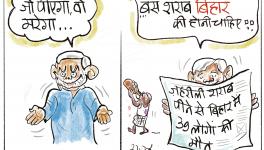 जो पीएगा वो
मरेगा...
बस शराब बिहार
की होनी चाहिए!!
जहरीली शराब
पीने से बिहार में
39 लोगों की
मौत